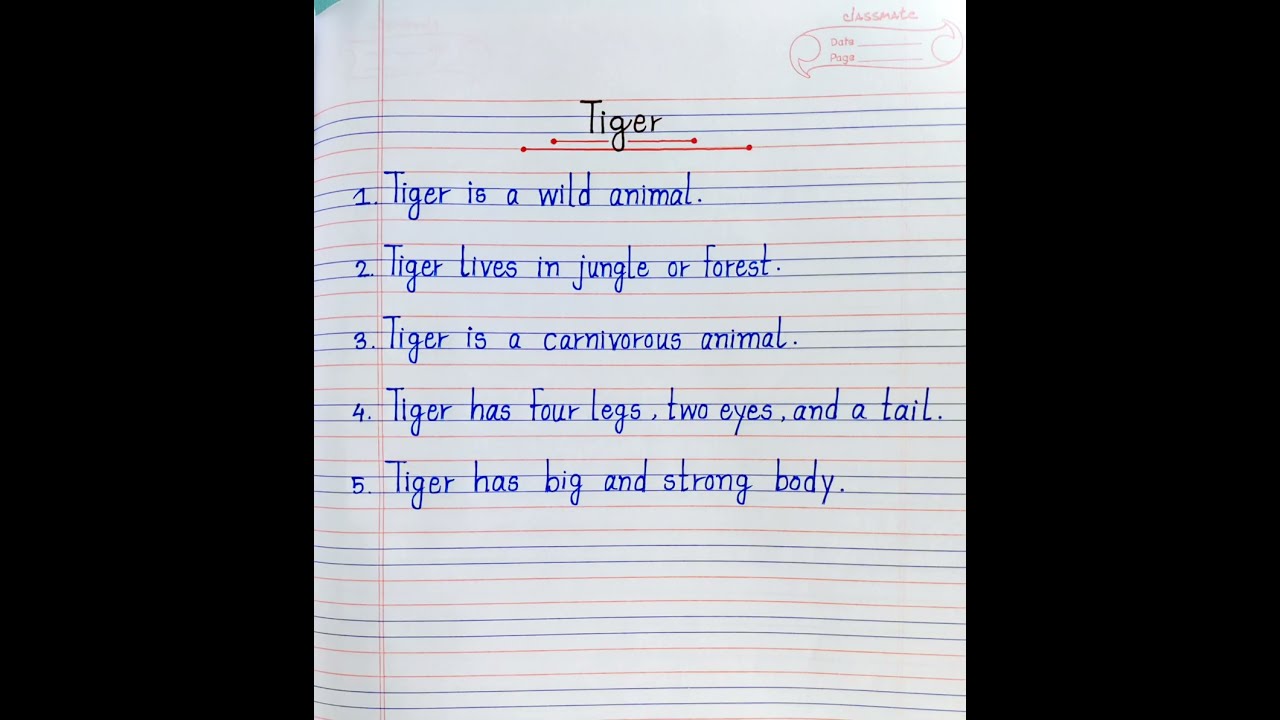 classmate
Date
Page
Tiger
1. Tiger is a wild animal.
2. Tiger lives in jungle or forest.
3. Tiger is a carnivorous animal.
4. Tiger has four legs, two eyes, and a tail.
5. Tiger has big and strong body.